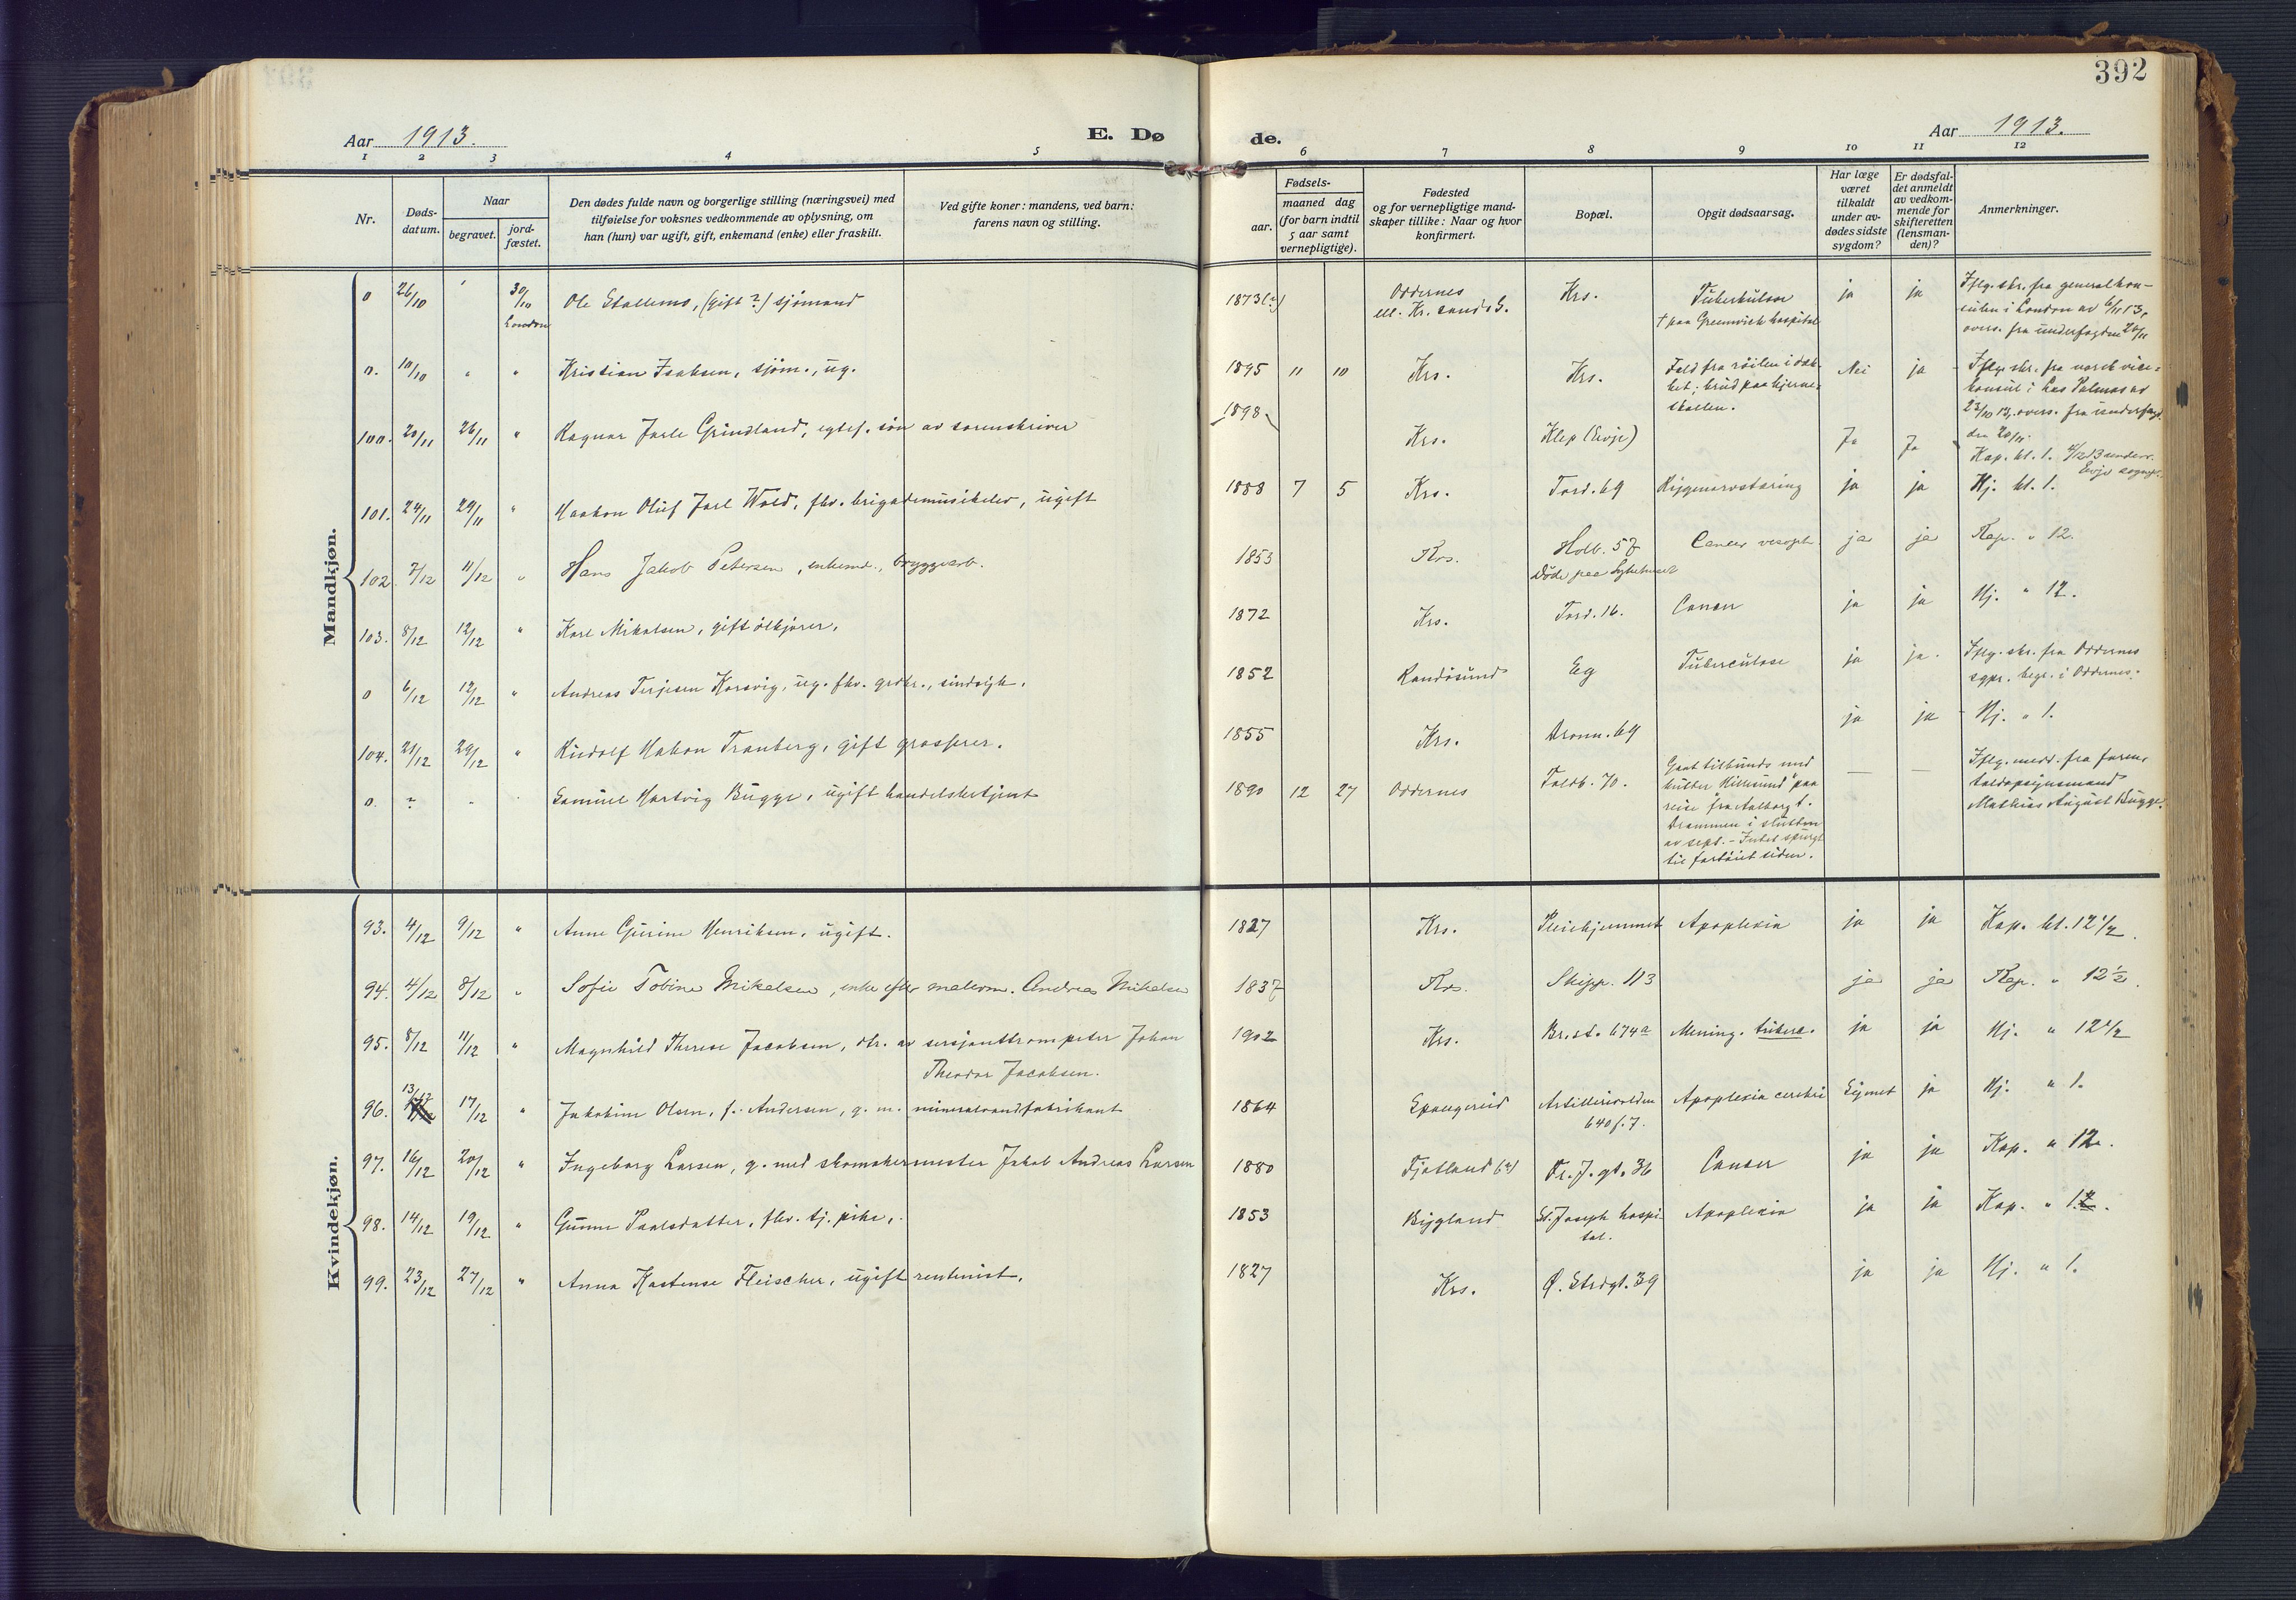 392
Aar 1913.
E. Dø de.
Aar 1913.
1 2 3 4 5 6 7 8 9 10 11 12
Nr.
Døds-
datum.
Naar
begravet.
jord-
fæstet.
Den dødes fulde navn og borgerlige stilling (næringsvei) med
tilføielse for voksnes vedkommende av oplysning, om
han (hun) var ugift, gift, enkemand (enke) eller fraskilt.
Ved gifte koner: mandens, ved barn:
farens navn og stilling.
Fødsels-
aar.
maaned dag
(for barn indtil
5 aar samt
vernepligtige).
Fødested
og for vernepligtige mand-
skaper tillike: Naar og hvor
konfirmert.
Bopæl.
Opgit dødsaarsag.
Har læge
været
tilkaldt
under av-
dødes sidste
sygdom?
Er dødsfal-
det anmeldt
av vedkom-
mende for
skifteretten
(lensman-
den)?
Anmerkninger.
Mandkjøn.
0 26/10 30/10 London Ole Stallemo, (gift?) sjømand 1873(?) Oddernes ell. Kr.sand S. Krs. Tuberkulose † paa Greenwich hospital ja ja Iflg. skr. fra generalkon-
sulen i London av 6/11 13,
overs. fra underfogden 26/11
0. 10/10 " " Kristian Isaksen, sjøm., ug. 1895 11 10 Krs. Krs. Fald fra røilen i dæk-
ket. brud paa hjerne-
skallen. Nei ja Iflg. skr. fra norsk vice-
konsul i Las Palmas av
23/10 13, overs. fra underfogd.
den 20/11.
100. 20/11 26/11 " Ragnar Jarle Grindland, egtef. søn av sorenskriver 1898 Krs. Klep (Evje) Ja Ja Kap. kl. 1. 4/12 13 underr. Evje sogn
101. 24/11 29/11 " Haakon Oluf Jarl Wold, fhv. brigademusikelev, ugift 1888 7 5 Krs. Tord. 69 Rygmarvstæring ja ja Kj. kl. 1.
102. 7/12 11/12 " Hans Jakob Petersen, enkemd., bryggearb. 1853 Krs. Holb. 57 Døde paa Sykehuset Cancer ja ja Kap. " 12.
103. 8/12 12/12 " Karl Mikalsen, gift ølkjører. 1872 Krs. Tord. 16. Cancer ja ja Kj. " 12.
0 6/12 12/12 " Andreas Terjesen Korsvig, ug. fhv. grdbr., sindssyk. 1852 Randøsund Eg Tuberculose ja ja. Iflg. skr. fra Oddernes
sgpr. begr. i Oddernes.
104. 21/12 29/12 " Rudolf Hakon Tranberg, gift grosserer. 1855 Krs. Dronn. 69 ja ja Kj. " 1.
0. ? " Samuel Hartvig Bugge, ugift handelsbetjent 1890 12 27 Oddernes Toldb. 70. Gaat tilbunds med
kutter "Hillesund" paa
reise fra Aalborg t.
Drammen i slutten
av sept. - Intet spurgt
til fartøiet siden. — — Iflg. medd. fra faren,
toldopsynsmand
Mathias August Bugge.
Kvindekjøn.
93. 4/12 9/12 " Anne Gurine Henriksen, ugift. 1827 Krs. Pleiehjemmet Apoplexia ja ja Kap. kl. 12 1/2.
94. 4/12 8/12 " Sofie Tobine Mikalsen, enke efter malerm. Andreas Mikalsen 1837 Krs. Skipp. 113 ja ja Kap. " 12 1/2.
95. 8/12 11/12 " Magnhild Therese Jacobsen, dtr. av sersjanttrompeter Johan
Theodor Jacobsen. 1902 Krs. Br.st. 674a Mening. tuberc. ja ja Kj. " 12 1/2
96. 13/12 17/12 " Jakobine Olsen, f. Andersen, g. m. mineralvandfabrikant 1864 Spangereid Artillerivolden
640 f. 7. Apoplexia cerebri ja Kj. " 1.
97. 16/12 20/12 " Ingeborg Larsen, g. med skomakermester Jakob Andreas Larsen 1880 Fjotland (?) Fr. J. gt. 36 Cancer ja ja Kap. " 12.
98. 14/12 19/12 " Gunne Paalsdatter, fhv. tj. pike,. 1853 Bygland St. Joseph hospi-
tal. Apoplexia ja ja Kap. " 12.
99. 23/12 27/12 " Anna Kastense Fleischer, ugift rentenist. 1827 Krs. Ø. Strdgt. 39 ja ja Kj. " 1.